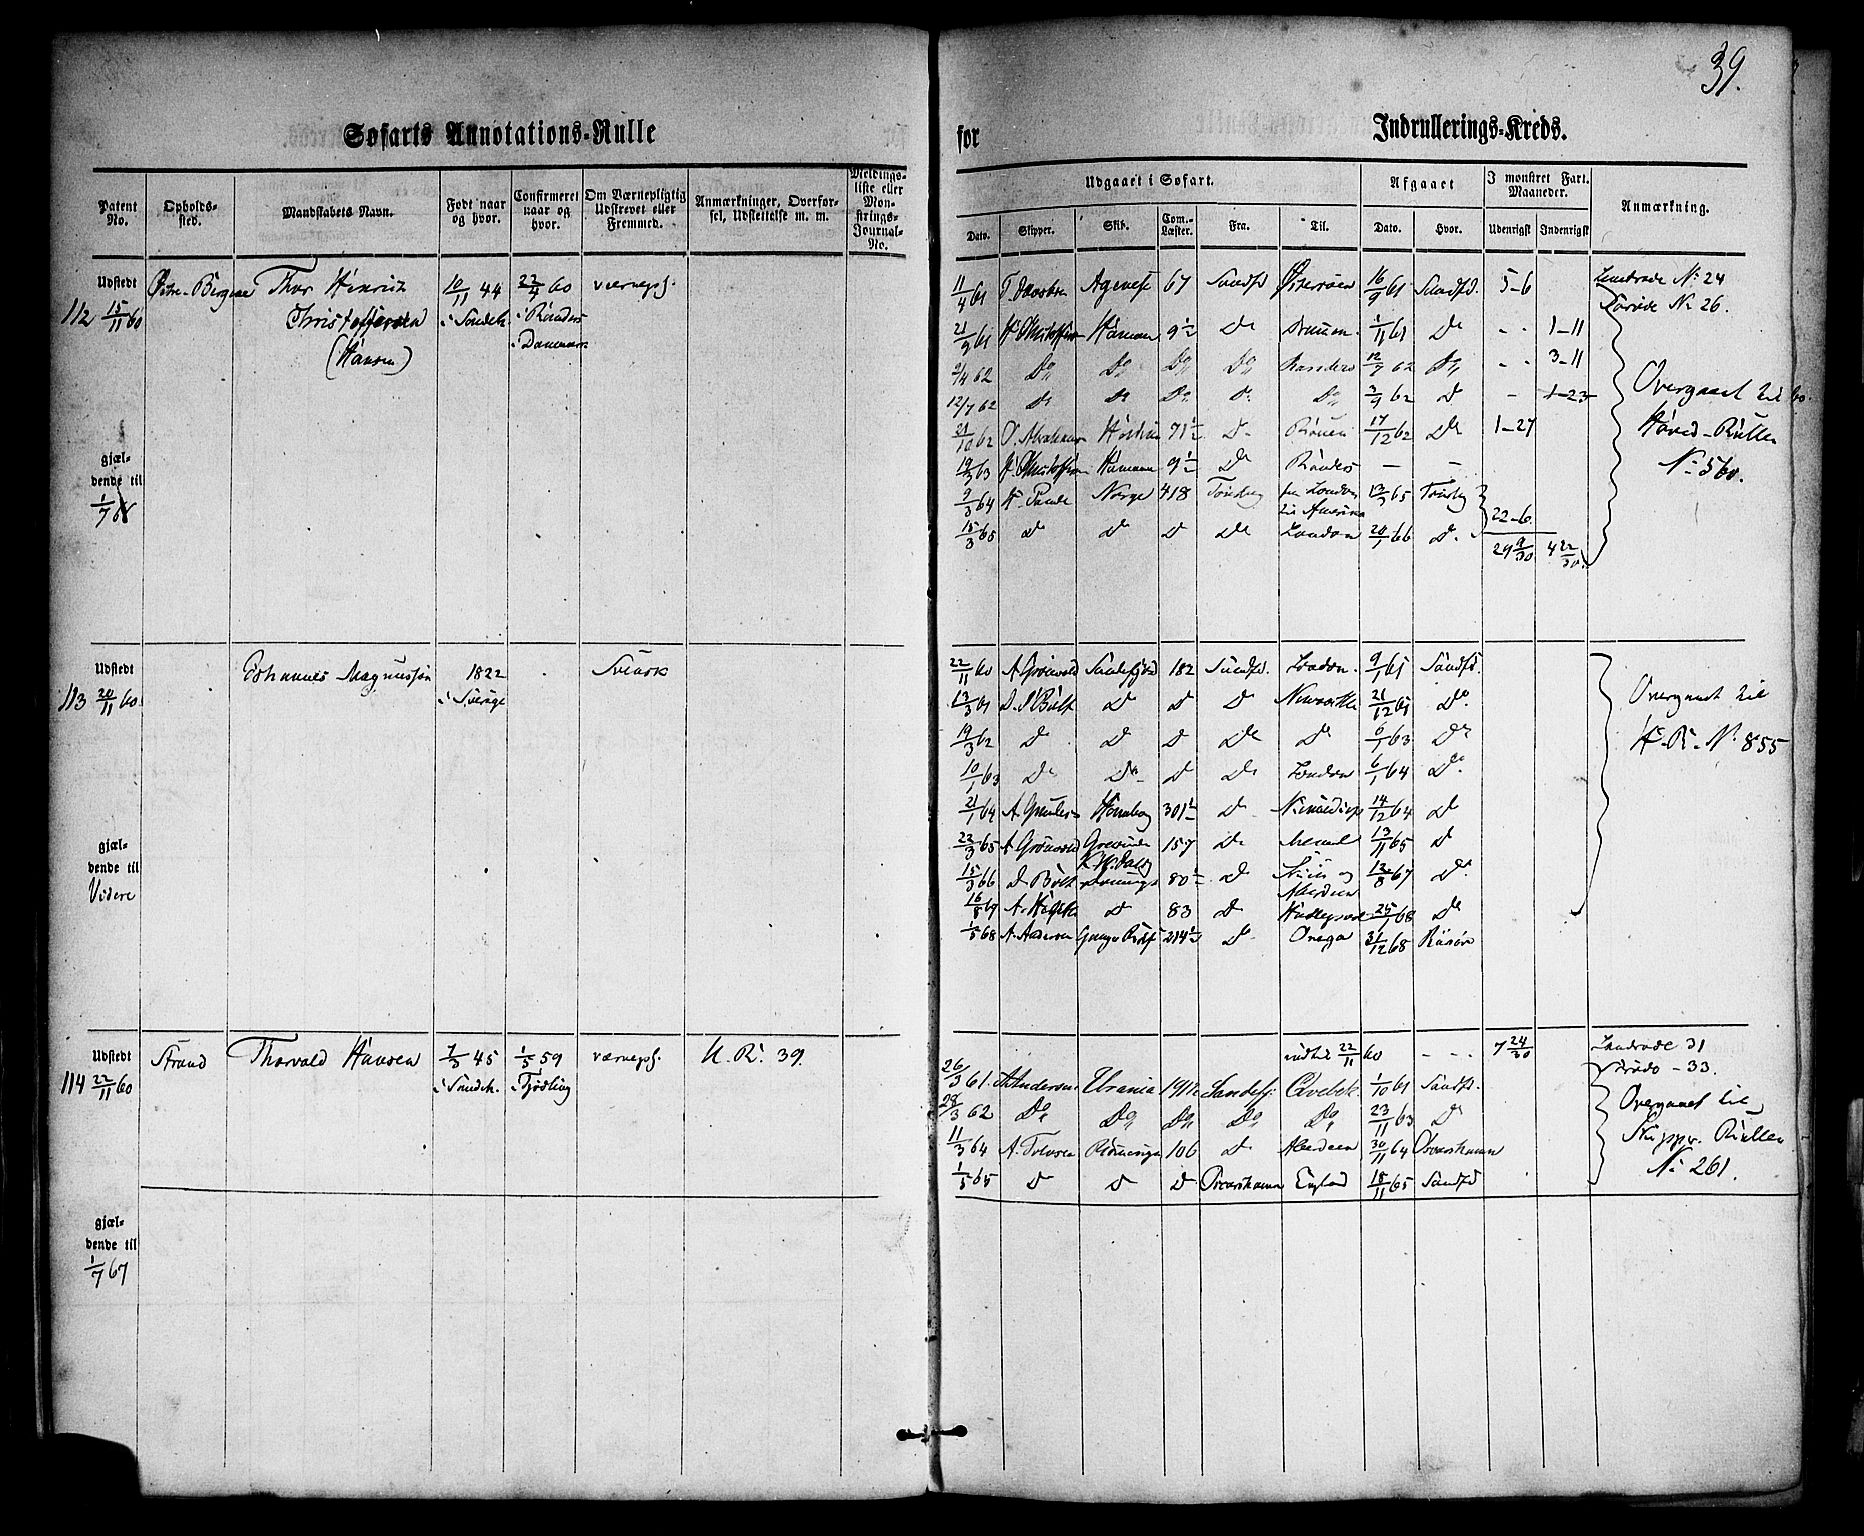 39.
Søfarts Annotations-Rulle
for
Indrullerings-Kreds.
Patent No.
Opholds-sted.
Mandskabets Navn.
Født naar og hvor.
Confirmeret naar og hvor.
Om Værnepligtig Udskrevet eller Fremmed.
Anmærkninger, Overførsel, Udslettelse m. m.
Meldingsliste eller Mønstrings-Journal-No.
Udgaaet i Søfart.
Afgaaet
I mønstret Fart. Maaneder.
Anmærkning.
Dato.
Skipper.
Skib.
Com.-Læster.
Fra.
Til.
Dato.
Hvor.
Udenrigsk
Indenrigsk
Udstedt
112 15/11 60
Østre-Bergene
Thor Hinrich
Christoffersen
(Hansen)
10/11 44
i Sandeh.
22/4 60
i Randers
i Danmark
værnepl.
gjæl-
dende til
1/7 68
11/4 61 67 Sandfd Østersøen 16/9 61 Sandfd. 5-6
Landrode No 24
Sørode No 26.
21/9 61 H Christoffersen 9½ Do 1/11 61 Do - - 1-11
2/4 62 Do Do Do Do Randers 12/7 62 Do - - 3-11
12/7 62 Do Do Do Do Do 3/9 62 Do - 1-23
21/10 62 71½ Do Rouen 17/12 62 Do 1-27
19/3 63 H Christoffersen 9½ Do Randers - -
9/3 64 Norge 418 Tønsbg fra London til Amerika 13/3 65 Tønsbg
22-6
15/3 65 Do Do Do Do London 20/1 66 Do
29 9/30 4 22/30
Overgaaet til
Hoved-Rullen
No 560.
Udstedt
113 20/11 60
Johannes Magnussøn
1822
i Sverige
Svensk
gjæl-
dende til
Videre
22/11 60 A Grønvold Sandefjord 182 Sandfd. London. 9/1 61 Sandfd.
13/3 61 Do Do Do Newcastle 21/12 61 Do
19/3 62 Do Do Do Do Do 6/1 63 Do
10/1 63 Do Do Do Do London 6/1 64 Do
21/1 64 301½ Do 14/12 64 Do
23/3 65 A Grønvold 157 Do Memel 13/11 65 Do
15/3 66 80½ Do og Aberdeen 12/8 67 Do
16/8 67 Do 83 Do 25/1 68 Do
1/5 68 A. Andersen Ganger Rolf 214½ Do Onega 31/12 68 Risør
Overgaaet til
H.-R. No 855
Udstedt
114 22/11 60
Strand
Thorvald Hansen
7/3 45
i Sandeh.
1/5 59
i Tjødling
værnepl.
U. R. 39.
gjæl-
dende til
1/7 67
indtil 22/11 60 - - - 7 24/30
Landrode 31
Sørode - 33.
26/3 61. A Andersen Urania Sandefj. 1/10 61 Sandfd.
28/3 62 Do Do Do Do Do 23/11 63 Do
11/3 64 106 Do Aberdeen 30/11 64 Oscarshamn
1/5 65 Do Do Do Oscarshamn England 18/11 65 Sandfd
Overgaaet til
Skippr. Rullen
No 261.